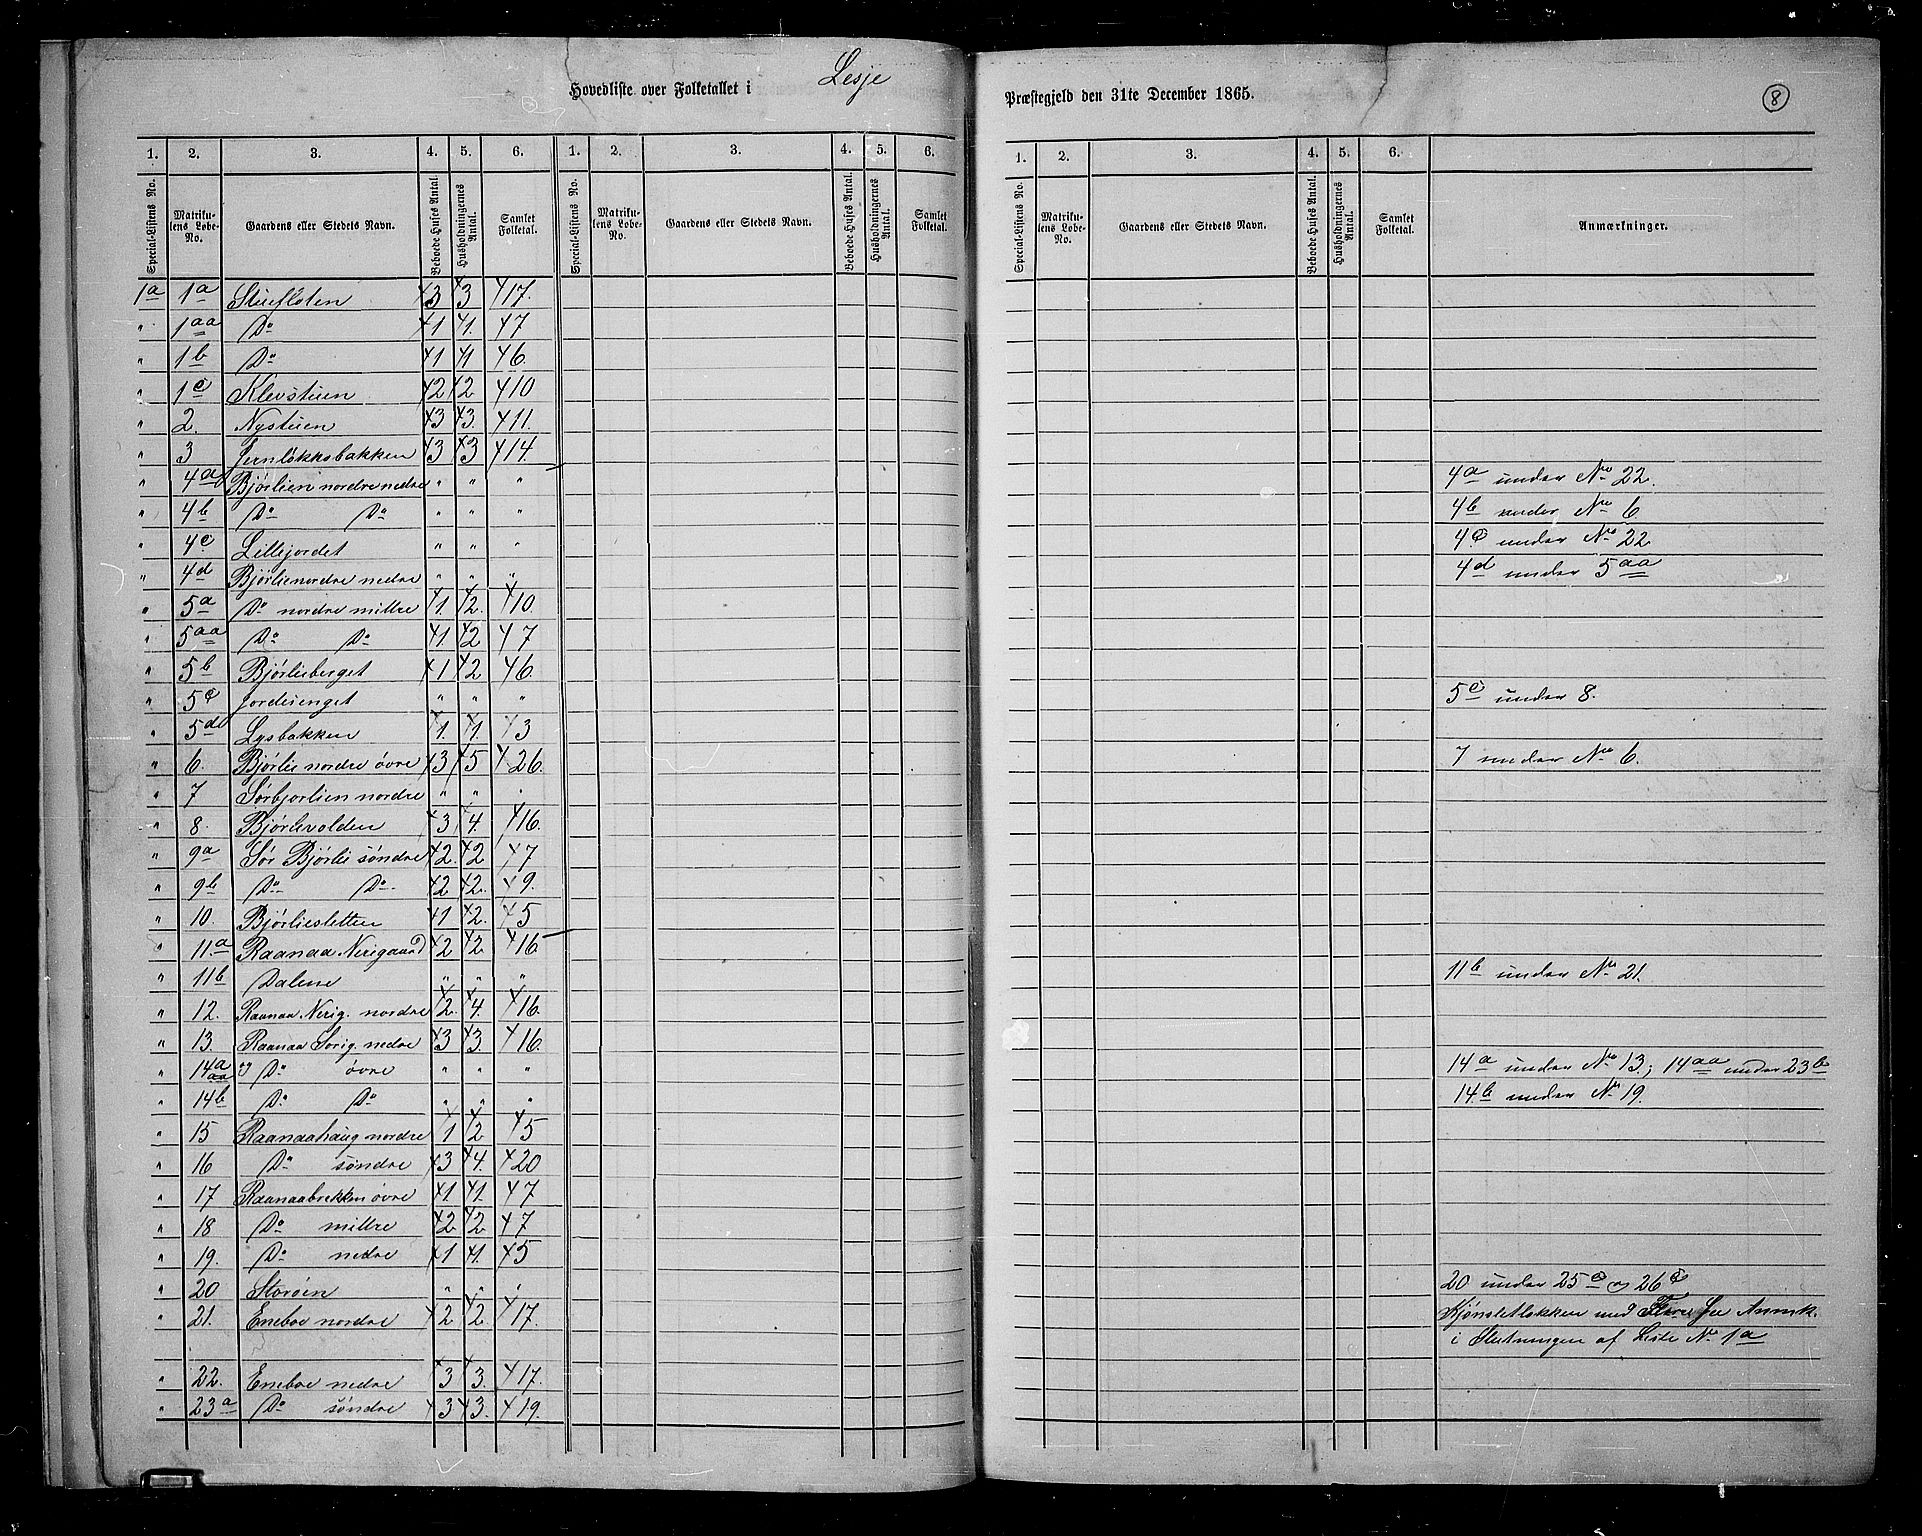 Hovedliste over Folketallet i Lesje Præstegjeld den 31te December 1865.
8
1. 2. 3. 4. 5. 6. 1. 2. 3. 4. 5. 6. 1. 2. 3. 4. 5. 6.
Special-Listens No. Matrikulens Løbe-No. Gaardens eller Stedets Navn. Beboede Huses Antal. Husholdningernes Antal. Samlet Folketal. Special-Listens No. Matrikulens Løbe-No. Gaardens eller Stedets Navn. Beboede Huses Antal. Husholdningernes Antal. Samlet Folketal. Special-Listens No. Matrikulens Løbe-No. Gaardens eller Stedets Navn. Beboede Huses Antal. Husholdningernes Antal. Samlet Folketal. Anmærkninger.
1a 1a Stuefloten 3 3 17.
" 1aa Do 1 1. 7
" 1b Do 1 1 6.
" 1c Klevstuen 2 2 10
" 2. Nystuen 3 3. 11.
" 3 Jernløkksbakken 3 3 14.
" 4a Bjørlien nordre nedre " " " 4a under No 22.
" 4b Do Do " " " 4b under No 6
" 4c Lillejordet " " " 4c under No 22
" 4d Bjørlie nordre nedre " " " 4d under 5aa
" 5a Do nordre millre 1. 2. 10.
" 5aa Do Do 1. 2 7
" 5b Bjørlieberget 1 2 6.
" 5c Jordeienget " " " 5c under 8.
" 5d Lysbakken 1. 1. 3
" 6. Bjørlie nordre øvre 3 5 26.
" 7 Sørbjorlien nordre " " " 7 under No 6.
" 8. Bjørlivolden 3 4. 16.
" 9a Sør Bjørlie søndre 2. 2 7
" 9b Do Do 2 2. 9.
" 10. Bjørliesletten 1 2. 5
" 11.a Raanaa Nerigaard 2 2 16.
" 11b Dalene " " " 11b under No 21.
" 12. Raanaa Nerig. nordre 2. 4. 16.
" 13. Raanaa Sorig. nedre 3 3. 16.
" 14a aa Do øvre " " " 14a under No 13.; 14aa under 23b
" 14b Do Do " " " 14b under No 19.
" 15 Raanaahaug nordre 1 2 5
" 16 Do søndre 3 4. 20
" 17 Raanaabrekken øvre 1. 1. 7
" 18 Do millre 2 2 7
" 19. Do nedre 1 1. 5
" 20 Storøen " " " 20 under 25c og 26c
" 21. Eneboe nordre 2 2 17. Kjønstetløkken med Flere See Anmk.
i Slutningen af Liste No 1a
" 22. Eneboe nedre 3 3. 17.
" 23a Do søndre 3 3. 19.